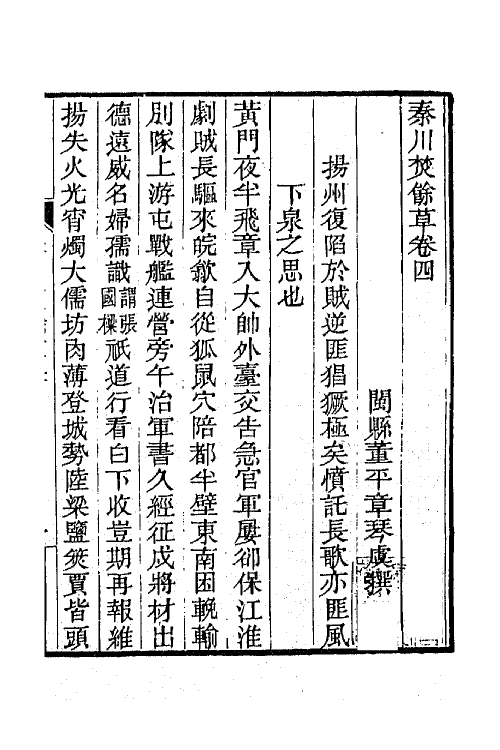 秦川焚餘草卷四
閩縣董平章琴虞撰
揚州復陷於賊逆匪猖獗極矣憤託長歌亦匪風
下泉之思也
黃門夜半飛章入大帥外臺交告急官軍屢卻保江淮
劇賊長驅來皖歙自從狐鼠穴陪都半壁東南困輓輸
別隊上游屯戰艦連營旁午治軍書久經征戍將材出
德遠威名婦孺識謂張國樑祇道行看白下收豈期再報維
揚失火光宵燭大儒坊肉薄登城勢陸梁鹽筴賈皆頭